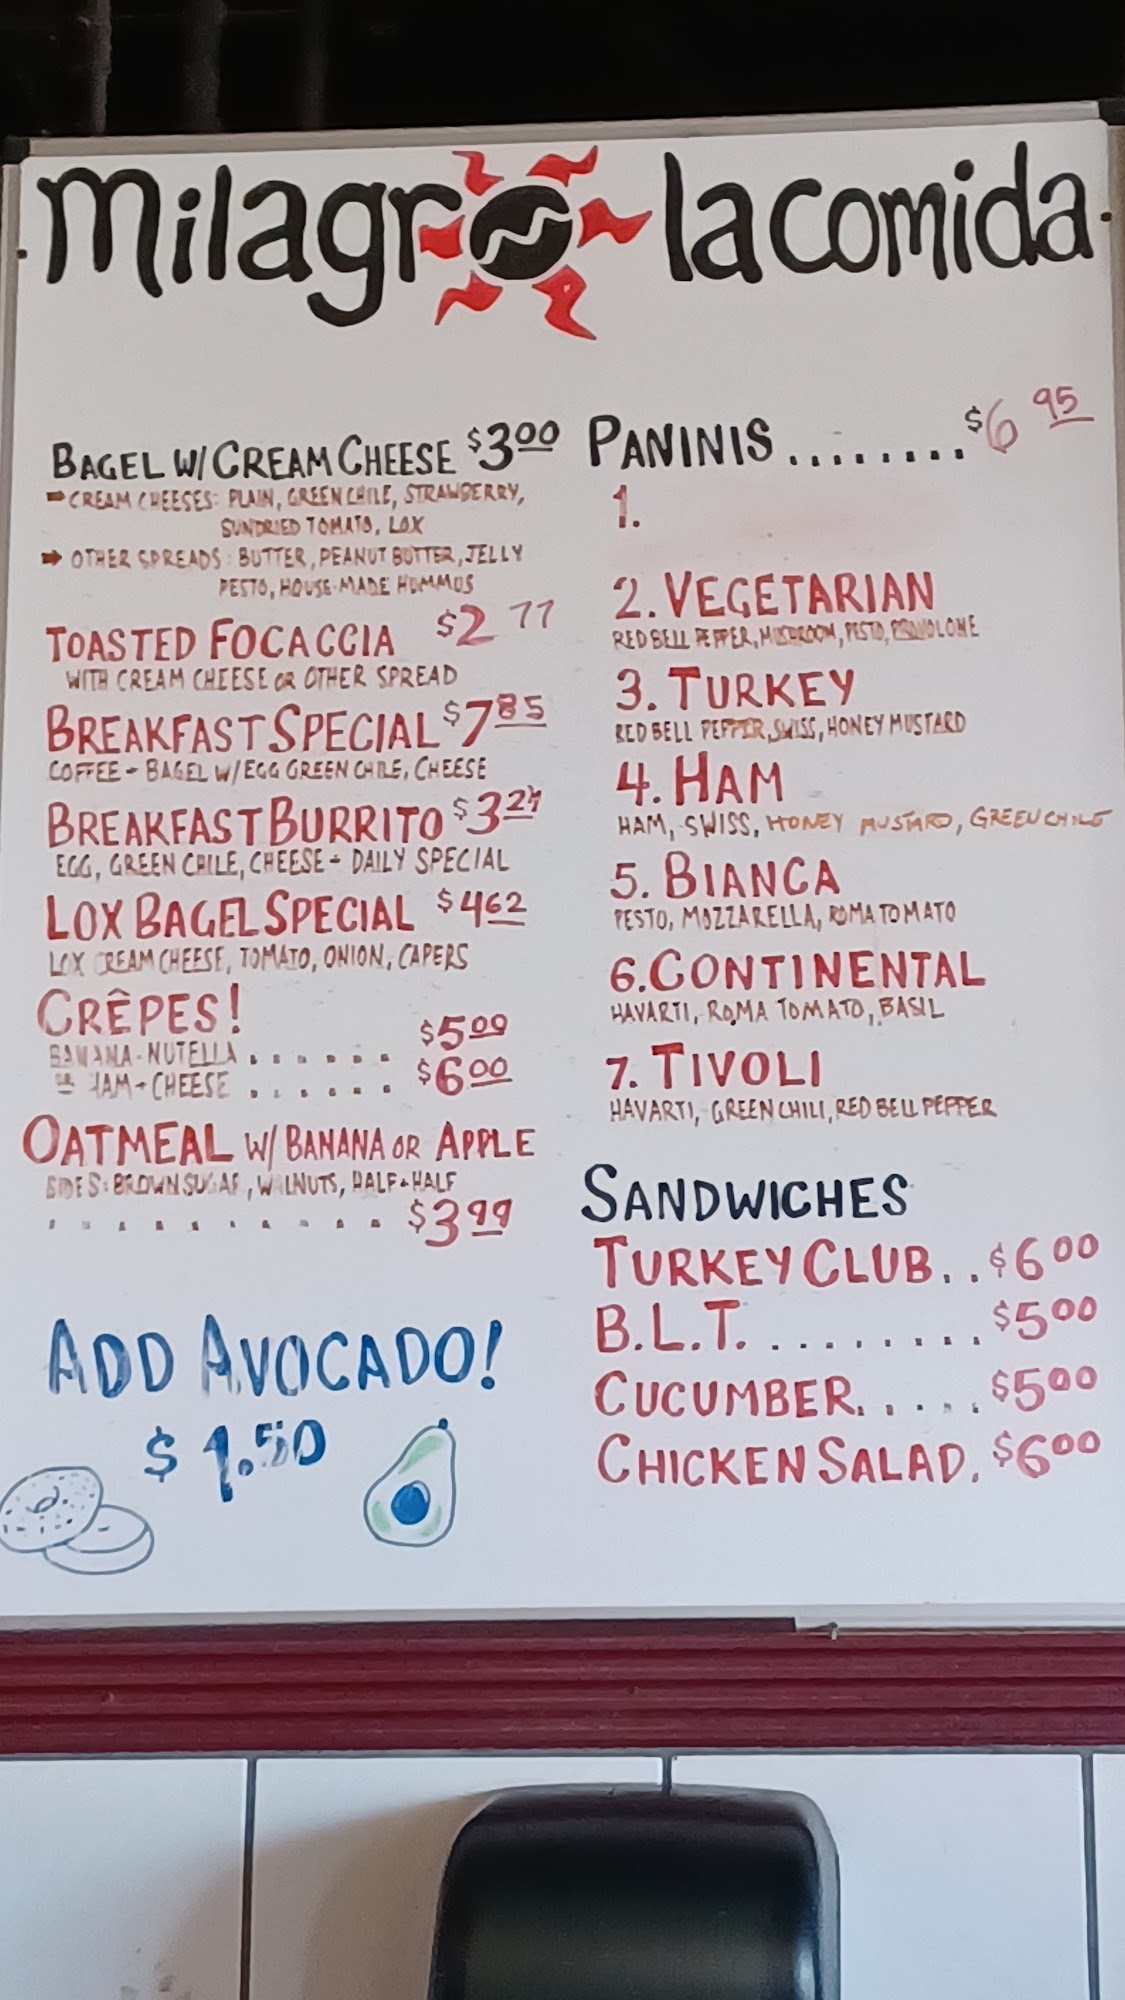 milagro la comida
BAGEL W/ CREAM CHEESE $3.00
CREAM CHEESES: PLAIN, GREEN CHILE, STRAWBERRY,
SUNDRIED TOMATO, LOX
OTHER SPREADS: BUTTER, PEANUT BUTTER, JELLY
PESTO, HOUSE-MADE HUMMUS
TOASTED FOCACCIA $2 77
WITH CREAM CHEESE OR OTHER SPREAD
BREAKFAST SPECIAL $7 85
COFFEE + BAGEL W/ EGG GREEN CHILE, CHEESE
BREAKFAST BURRITO $3
EGG, GREEN CHILE, CHEESE + DAILY SPECIAL
LOX BAGEL SPECIAL $4 62
LOX CREAM CHEESE, TOMATO, ONION, CAPERS
CRÊPES!
BANANA-NUTELLA ...... $5 00
OR HAM + CHEESE ...... $6 00
OATMEAL W/ BANANA OR APPLE
SIDES: BROWN SUGAR, WALNUTS, HALF + HALF
........... $3 99
ADD AVOCADO!
$ 1.50
PANINIS ........ $6 95
1.
2. VEGETARIAN
RED BELL PEPPER, MUSHROOM, PESTO, PROVOLONE
3. TURKEY
RED BELL PEPPER, SWISS, HONEY MUSTARD
4. HAM
HAM, SWISS, HONEY MUSTARD, GREEN CHILE
5. BIANCA
PESTO, MOZZARELLA, ROMA TOMATO
6. CONTINENTAL
HAVARTI, ROMA TOMATO, BASIL
7. TIVOLI
HAVARTI, GREEN CHILI, RED BELL PEPPER
SANDWICHES
TURKEY CLUB.. $6 00
B.L.T. ........ $5 00
CUCUMBER..... $5 00
CHICKEN SALAD. $6 00